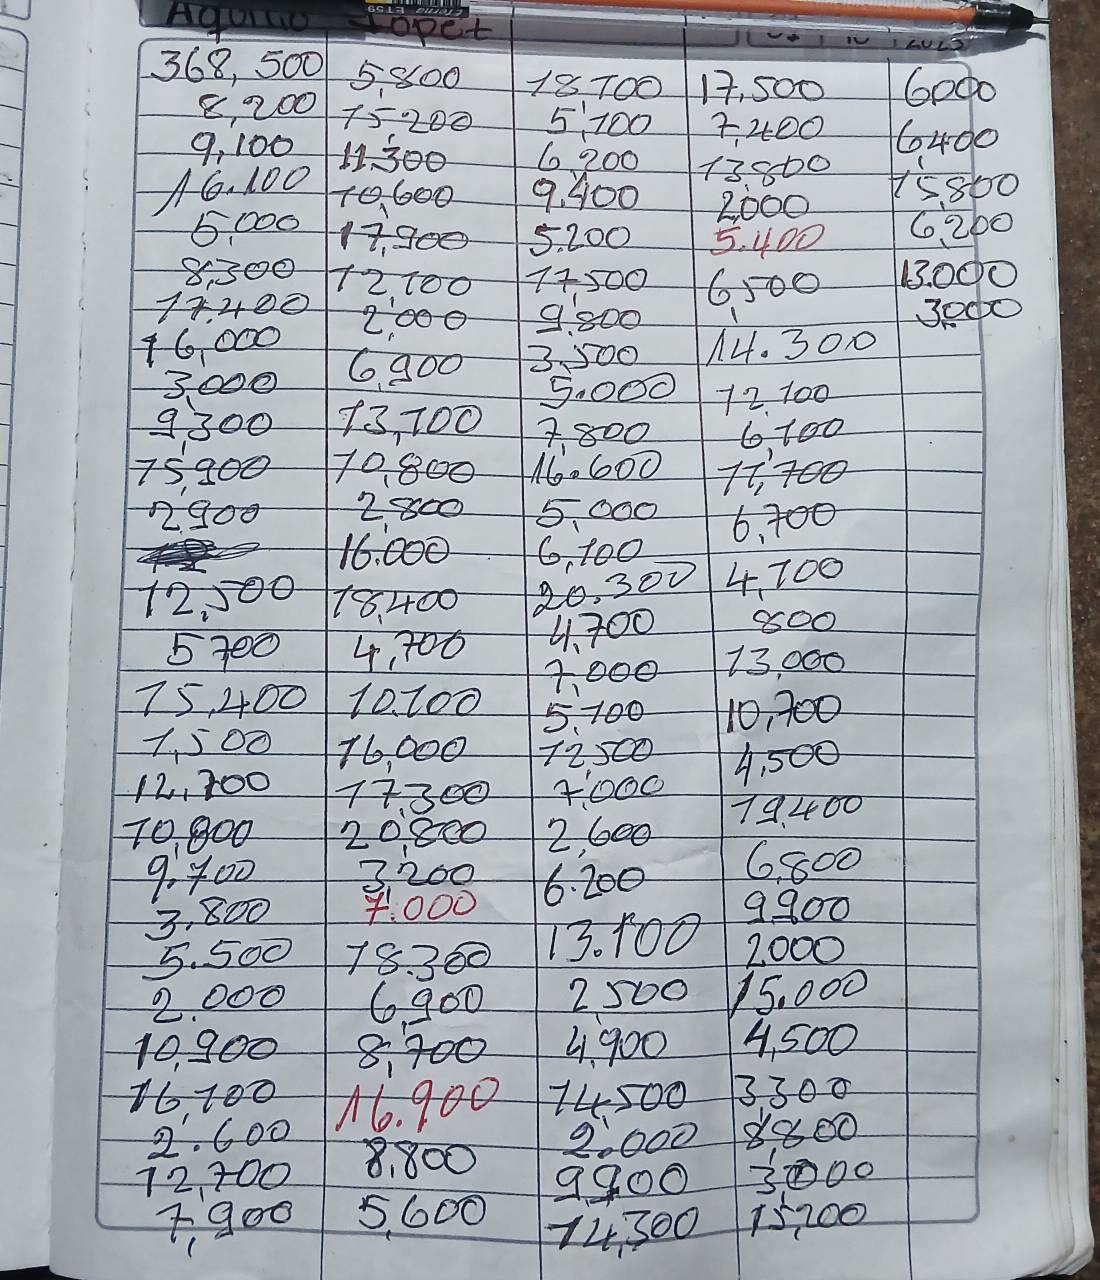 Lopet
368,500
8,200
9,100
16.100
5,000
8,300
17.400
16,000
3,000
9,300
15,900
2,900
12,500
5700
15,400
1,500
12,700
10,800
9.700
3,800
5.500
2.000
10,900
16,100
2.600
12,700
7,900
5,800
15,200
11.300
10,600
17,900
12,100
2,000
6,900
13,100
10,800
2,800
16.000
18,400
4,700
10.100
16,000
17,300
20,800
3,200
7.000
18.300
6,900
8,700
16.900
8,800
5,600
18,100
5,100
6,200
9.400
5.200
17,500
9,800
3,500
5.000
7,800
16.600
5,000
6,100
20.300
4,700
7,000
5,100
12,500
7,000
2,600
6.200
13.100
2,500
4,900
14,500
2.000
9,900
14,300
17,500
7,400
13,800
2,000
5.400
6,500
14.300
12,100
6,100
11,700
6,700
4,100
800
13,000
10,700
4,500
19,400
6,800
9,900
2000
15.000
4,500
3,300
8,800
3,000
15,200
6000
6,400
15,800
6,200
13.000
3,000